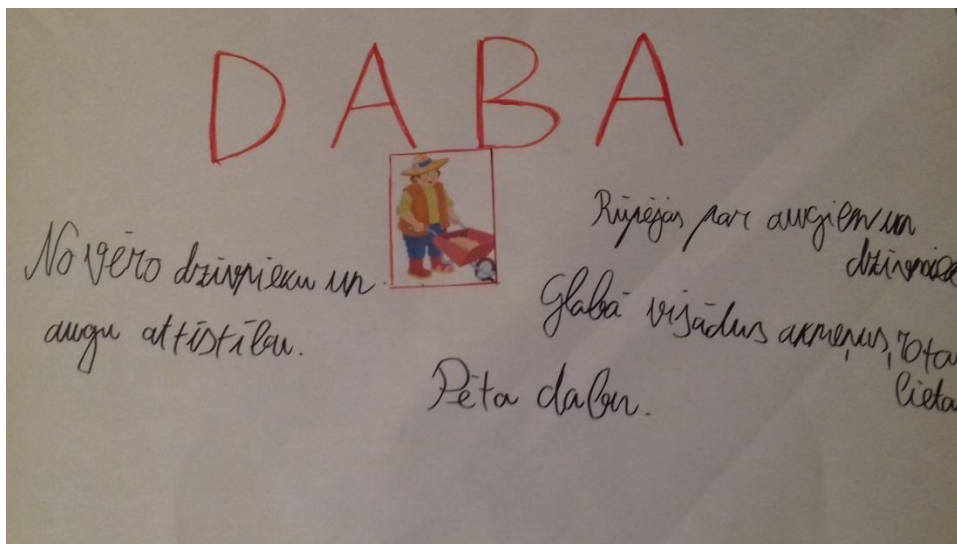 DABA
Novēro dzīvnieku un
augu attīstību.
Rūpējas par augiem un
dzīvnie
Glabā visādus akmeņus,
lieta
Pēta dabu.